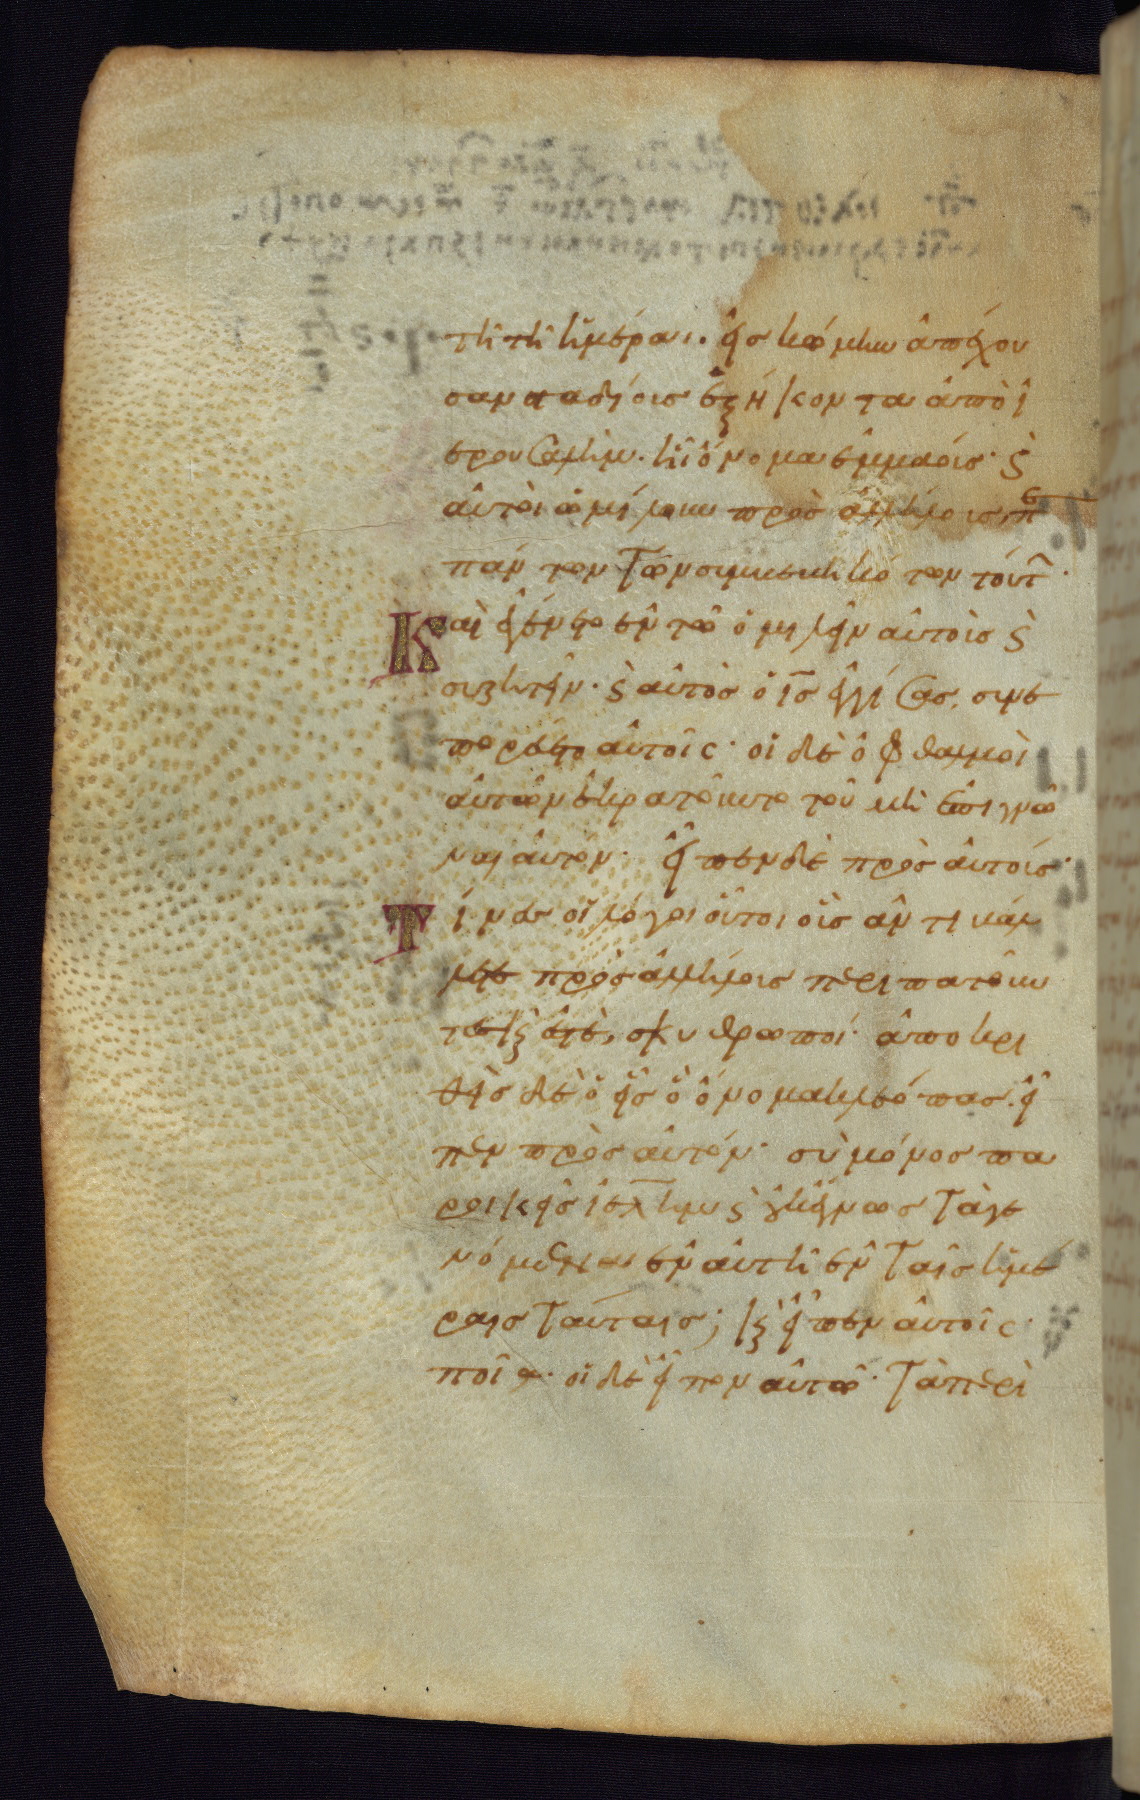 τῆ τῆ ἡμέραι. εἰς κώμην ἀπέχου
σαν σταδίοις ἑξήκοντα ἀπὸ ἱ
ερουσαλὴμ. ἧι ὄνομα ἐμμαούς· ϗ
αὐτοὶ ὡμίλουν πρὸς ἀλλήλους, πε
πάντων τῶν συμβεβηκότων τούτ·
Καὶ ἐγένετο ἐν τῶ ὁμιλεῖν αὐτοὺς ϗ
συζητεῖν· ϗ αὐτὸς ὁ ις ἐγγίσας, συνε
πορεύετο αὐτοῖς· οἱ δὲ ὀφθαλμοὶ
αὐτῶν ἐκρατοῦντο τοῦ μὴ ἐπιγνῶ
ναι αὐτόν· εἶπεν δὲ πρὸς αὐτούς·
Τίνες οἱ λόγοι οὗτοι οὓς ἀντιβάλ
λετε πρὸς ἀλλήλους περιπατοῦν
τες ϗ ἐστὲ, σκυθρωποί· ἀποκρι
θεὶς δὲ ὁ εἷς ὧ ὄνομα κλεόπας. εἶ
πεν πρὸς αὐτόν· σὺ μόνος πα
ροικεῖς ἱελημ ϗ οὐκ ἔγνως τὰ γε
νόμενα ἐν αὐτῆ ἐν ταῖς ἡμέ
ραις ταύταις; ϗ εἶπεν αὐτοῖς·
ποῖα· οἱ δὲ εἶπον αὐτῶ· τὰ περὶ